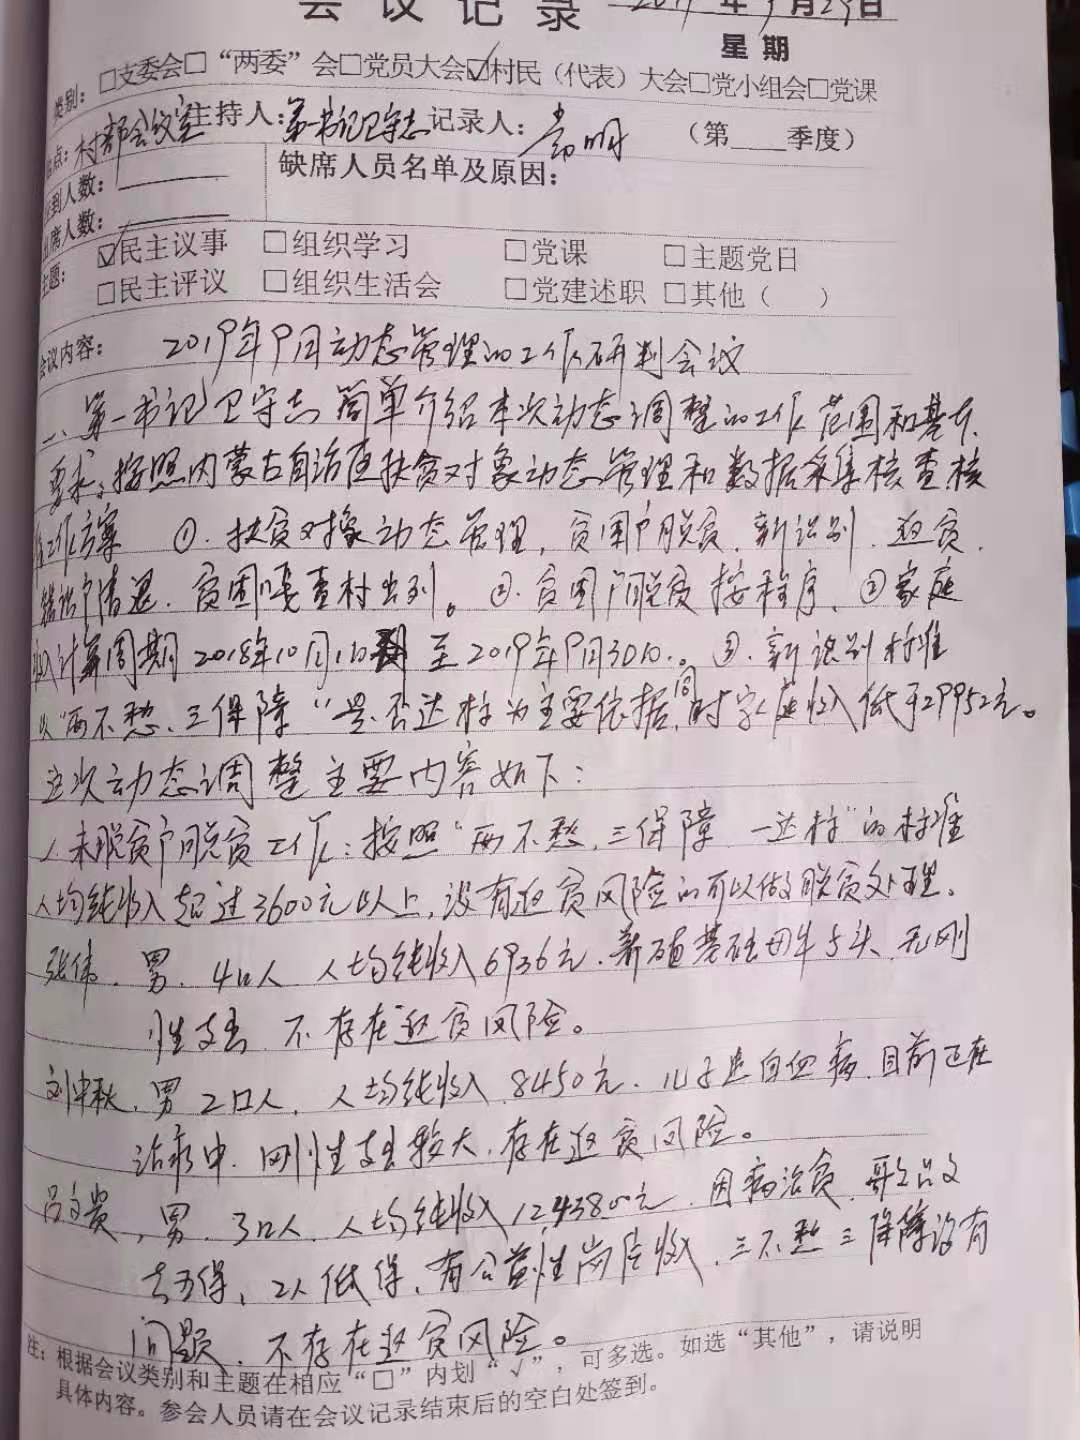 会议记录 2019年9月29日
星期
类别：□支委会□“两委”会□党员大会☑村民（代表）大会□党小组会□党课
地点：村部会议室 主持人：第一书记卫守志 记录人： （第____季度）
应到人数：
缺席人员名单及原因：
出席人数：
主题：☑民主议事 □组织学习 □党课 □主题党日
□民主评议 □组织生活会 □党建述职 □其他（ ）
会议内容： 2019年9月动态管理的工作研判会议
一、第一书记卫守志简单介绍本次动态调整的工作范围和基本
要求，按照内蒙古自治区扶贫对象动态管理和数据采集核查核
工作方案 ①．扶贫对象动态管理，贫困户脱贫．新识别．返贫．
错识户清退．贫困嘎查村出列。②．贫困户脱贫按程序、②家庭
收入计算周期2018年10月1日至2019年9月30日。③．新识别标准
以“两不愁、三保障”是否达标为主要依据，同时家庭收入低于2995元。
这次动态调整主要内容如下：
1．未脱贫户脱贫工作：按照“两不愁，三保障 一达标”的标准
人均纯收入超过3600元以上，没有返贫风险的可以做脱贫处理。
张伟．男．4口人 人均纯收入6936元．养殖基础母牛5头．无刚
性支出 不存在返贫风险。
刘中秋．男 2口人．人均纯收入8450元．儿子患白血病．目前正在
治疗中．刚性支出较大，存在返贫风险。
吕文贵，男．3口人．人均纯收入 元．因病治贫．哥吕文
五保，2人低保，有公益性岗位收入，三不愁三保障没有
问题，不存在返贫风险。
注：根据会议类别和主题在相应“□”内划“√”，可多选。如选“其他”，请说明
具体内容。参会人员请在会议记录结束后的空白处签到。